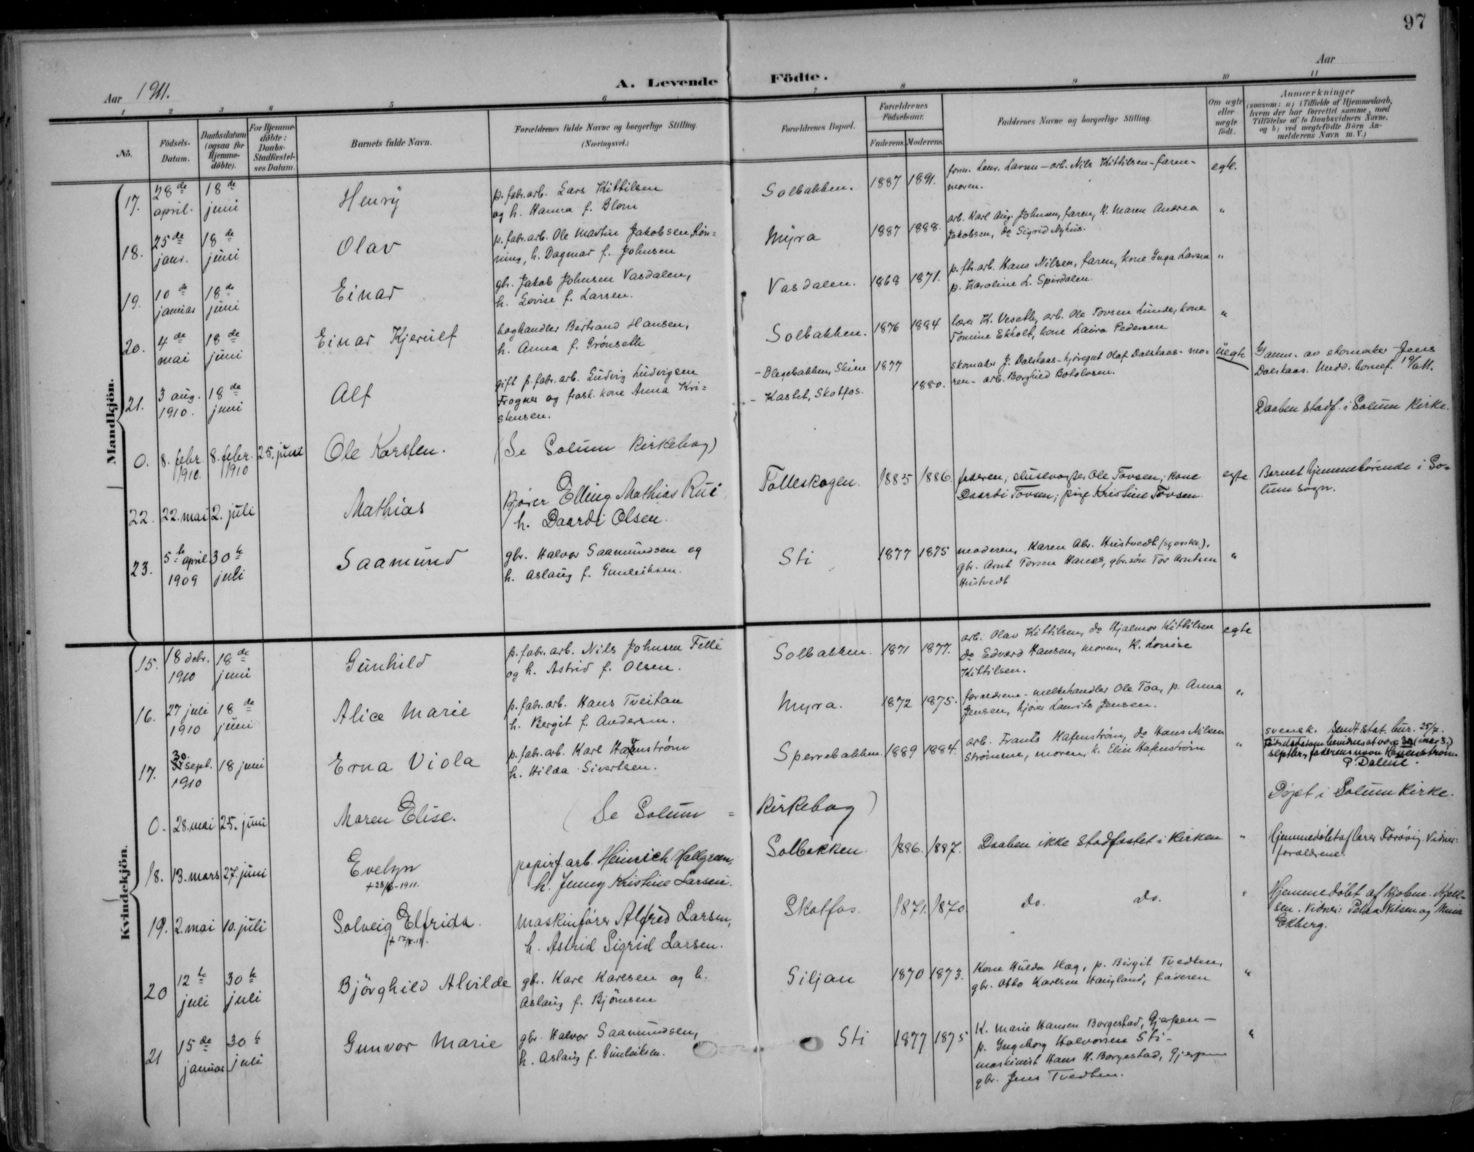 97
Aar 1911.
A. Levende Födte.
Aar
1 2 3 4 5 6 7 8 9 10 11
No.
Födsels-Datum.
Daabsdatum (ogsaa for Hjemme-döbte).
For Hjemme-döbte: Daabs-Stadfæstel-ses Datum.
Barnets fulde Navn.
Forældrenes fulde Navne og borgerlige Stilling. (Næringsvei.)
Forældrenes Bopæl.
Forældrenes Födselsaar.
Faderens. Moderens.
Faddernes Navne og borgerlige Stilling.
Om ægte eller uægte födt.
Anmærkninger
(saasom: a; i Tilfælde af Hjemmedaab, hvem der har forrettet samme, med Tilföielse af to Daabsvidners Navne, og b; ved uægtefödte Börn Anmelderens Navn m. V.)
Mandkjön.
17. 28de april. 18de juni Henry p. fabr.arb. Lars Kittilsen og h. Hanna f. Blom Solbakken. 1887 1891. form. Laur. Larsen - arb. Nils Kittilsen - faren - moren. egte.
18. 25de janr. 18de juni Olav p. fabr.arb. Ole Martin Jakobsen Rönning, h. Dagmar f. Johnsen Myra 1887 1888. arb. Karl Aug. Johnsen, faren, k. Maren Andrea Jakobsen, do Sigrid Nyhus. "
19. 10de januar 18de juni Einar gbr. Jakob Johnsen Vasdalen, h. Lovise f. Larsen. Vasdalen. 1868 1871. p. fbr.arb. Hans Nilsen, faren, kone Inga Larsen p. Karoline L. Spirdalen. "
20. 4de mai 18de juni Einar Kjerulf boghandler Bertrand Hansen, h. Anna f. Grönseth Solbakken. 1876 1884 lærer H. Veseth, arb. Ole Torsen Lunde, kone Tomine Ekholt, kone Laura Pedersen "
21. 3 aug. 1910. 18de juni Alf gift p. fabr.arb. Ludvig Ludvigsen Frogner og frask. kone Anna Kristensen. - Olasbakken, Skien - Kastet, Skotfos. 1877 1880. skomaker J. Dalsaas - kjöregut Olaf Dalsaas - moren - arb. Borghild Bolvorsen. uegte Ganm. av skomaker Jens Dalsaas.
0. 8. febr. 1910. 8. febr. 1910 25. juni Ole Karsten. (Se Solum Kirkebog) Daaben stadf. i Solum Kirke.
22. 22. mai 2. juli Mathias kjörer Elling Mathias Rui h. Daardi Olsen. Tolleskogen. 1885 1886. faderen, slusevogter Ole Tovsen; kone Daardi Tovsen; pige Kristine Tovsen egte Barnet hjemmehörende i Solum sogn.
23. 5te april 1909 30te juli Saamund gbr. Halvor Saamundsen og h. Aslaug f. Gunleiksen. Sti 1877 1875 moderen, Karen Abr. Hustvedt, gbr. Arnt Torsen Haneæs, gbr.sön Tor Arntsen Hustvedt "
Kvindekjön.
15. 18 debr. 1910 18de juni Gunhild p. fabr. arb. Nils Johnsen Felle og h. Astrid f. Olsen. Solbakken. 1871 1877. arb. Olav Kittilsen, do Hjalmar Kittilsen do Edvard Hansen, moren, K. Lovise Kittilsen. egte
16. 27 juli 1910 18de juni Alice Marie p. fabr.arb. Hans Tveitan h. Bergit f. Andersen. Myra. 1872 1875. forældrene - melkehandler Ole Toa, p. Anna Jensen, kjörer Lauritz Jensen. "
17. 30. sept. 1910 18 juni Erna Viola p. fabr.arb. Karl Hafenström h. Hilda Sivertsen. Sperrebakken 1889 1884. arb. Frants Hafenström, do Hans Nilsen Strömme, moren, k. Elin Hafenström " svensk. Sendt Stat. bur. 25/7.
0. 28. mai 25. juni Maren Elise. (Se Solum = Kirkebog) Döpt i Solum Kirke.
18. 13. mars 27. juni Evelyn papirf.arb. Heinrich Hallgreen, h. Jenny Kristine Larsen. Solbakken 1886. 1887. Daaben ikke stadfæstet i Kirken " Hjemmedöbt af Lars Försvig. Vidner: forældrene.
19. 2. mai 10. juli Solveig Elfrida. maskinförer Alfred Larsen, h. Astrid Sigrid Larsen. Skotfos. 1871. 1870. do. do. " Hjemmedöbt af Vidner: Petra Nilsen og Ekberg.
20 12te juli 30te juli Björghild Alvilde gbr. Karl Karlsen og h. Aslaug f. Björnsen Siljan 1870 1873. Kone Hulda Hæg, p. Birgit Tvedten, gbr. Otto Karlsen Haugland, faderen "
21 15de januar 30te juli Gunvor Marie gbr. Halvor Saamundsen, h. Aslaug f. Gunleiksen. Sti 1877 1875 K. Marie Hansen Borgestad, Gjerpen - p. Ingeborg Halvorsen Sti - maskinist Hans H. Borgestad, Gjerpen gbr. Jens Tvedten. "